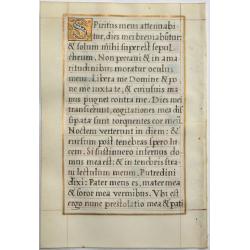 Spiritus meus attenuabi
tur, dies mei breviabũtur:
& solum mihi superest sepul
chrum. Non peccavi & in ama
ritudinibus moratur oculus
meus. Libera me Domine & po
ne me iuxta te, & cuiusvis ma
nus pugnet contra me. Dies mei
transierunt, cogitationes meę dis
sipatæ sunt torquentes cor meũ.
Noctem verterunt in diem: &
rursum post tenebras spero lu
cem. Si sustinuero infernus do
mus mea est: & in tenebris stra
vi lectulum meum. Putredini
dixi: Pater meus es, mater mea
& soror mea vermibus. Vbi est
ergo nunc prestolatio mea & pati